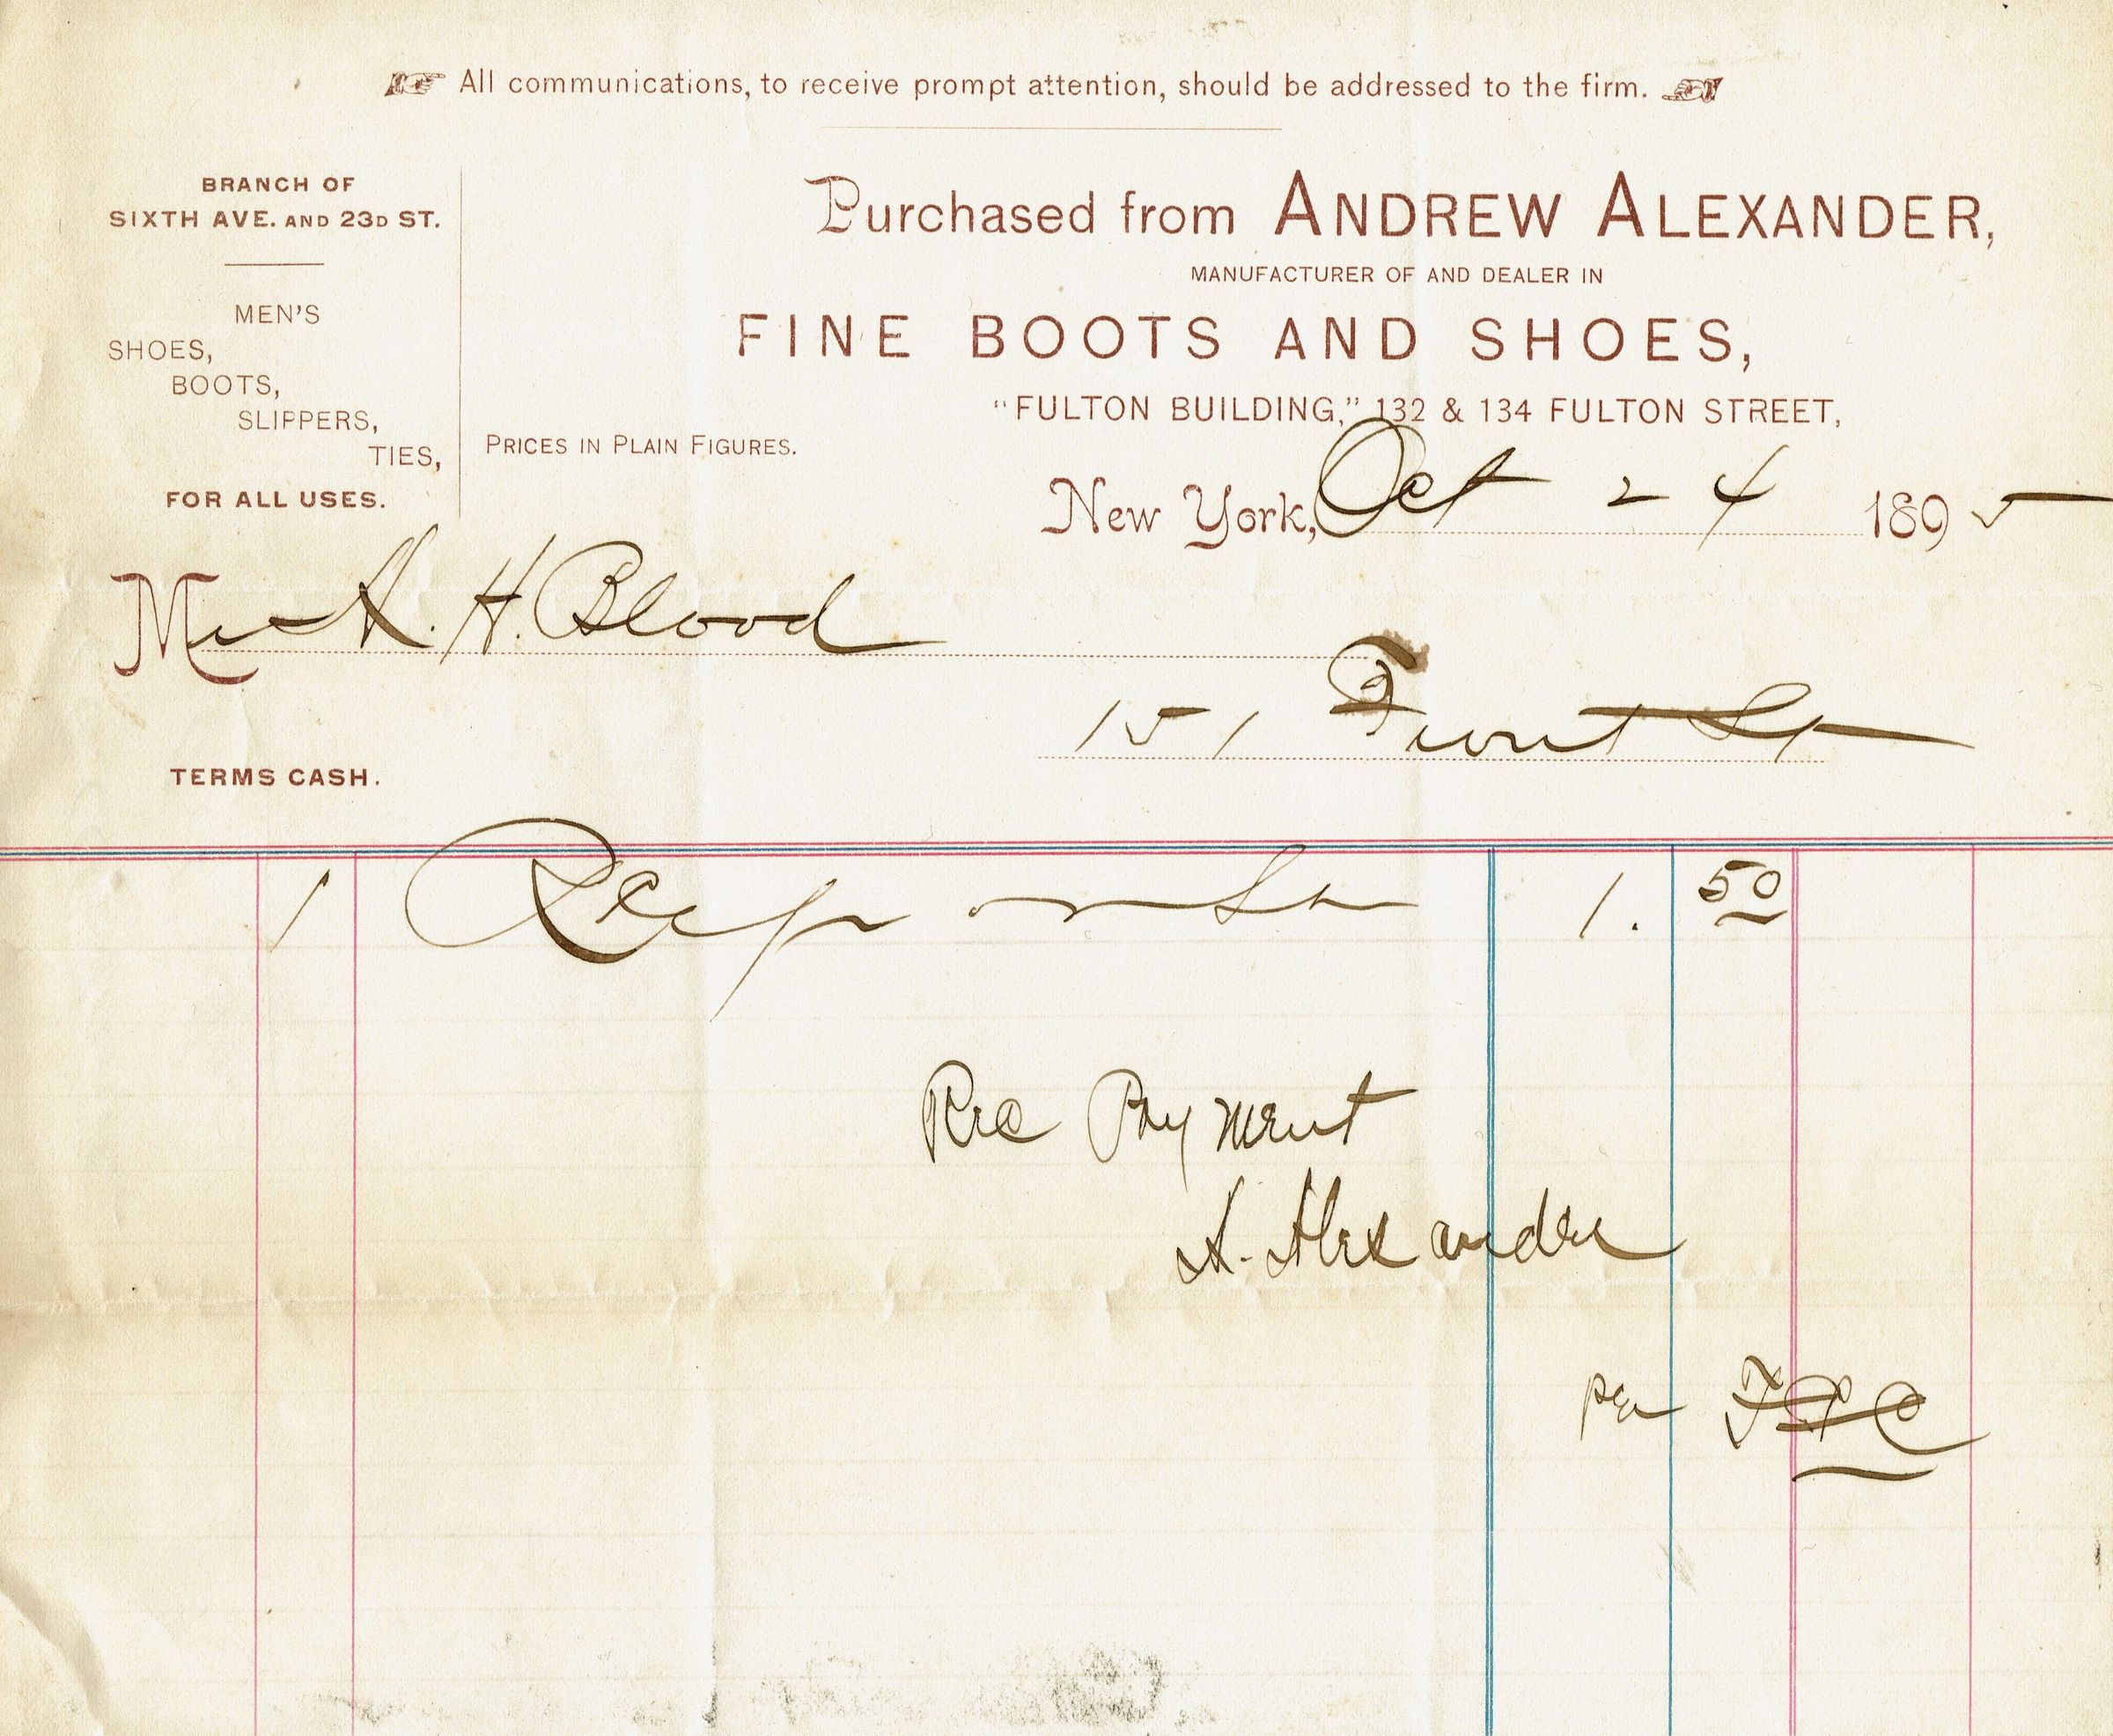 All communications, to receive prompt attention, should be addressed to the firm.
BRANCH OF
SIXTH AVE. AND 23D ST.
MEN'S
SHOES,
BOOTS,
SLIPPERS,
TIES,
FOR ALL USES.
Purchased from ANDREW ALEXANDER,
MANUFACTURER OF AND DEALER IN
FINE BOOTS AND SHOES,
"FULTON BUILDING," 132 & 134 FULTON STREET,
PRICES IN PLAIN FIGURES.
New York, Oct 24 1895
Mr A. H. Blood
151 Front St
TERMS CASH.
1 1. 50
Rec Payment
A. Alexander
per